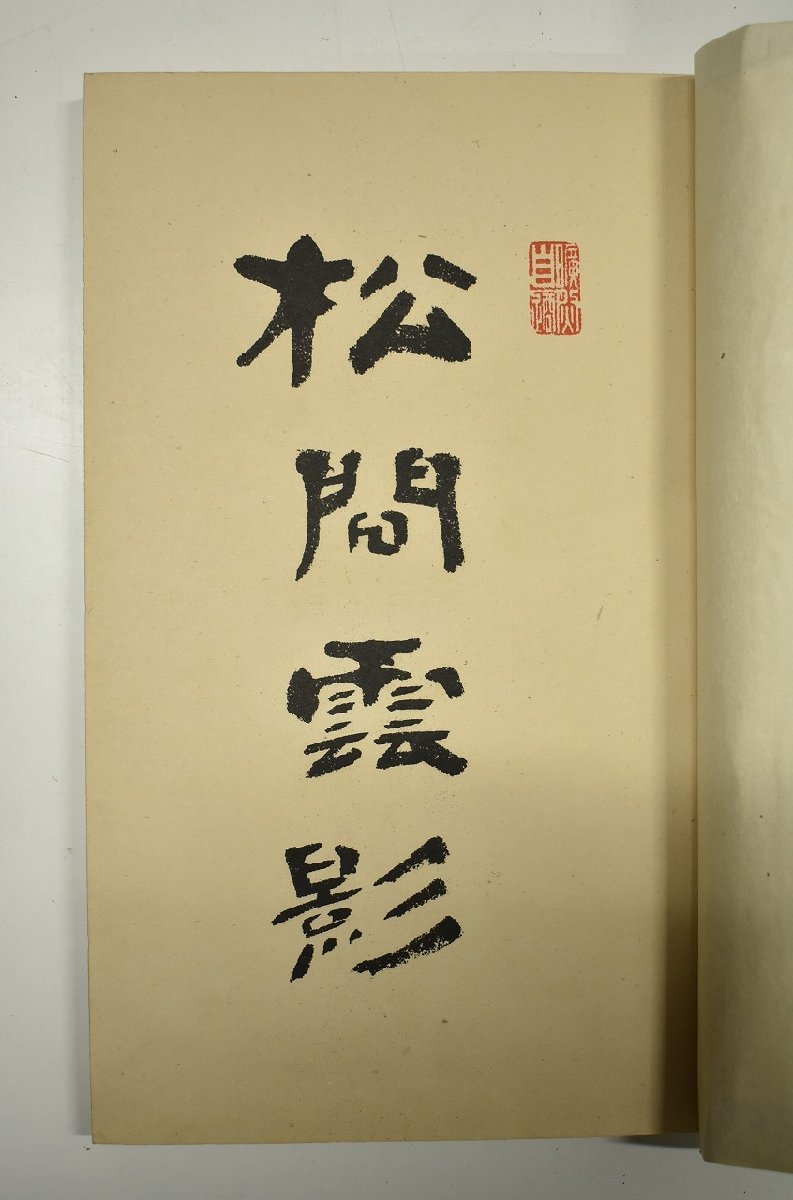 松間雲影